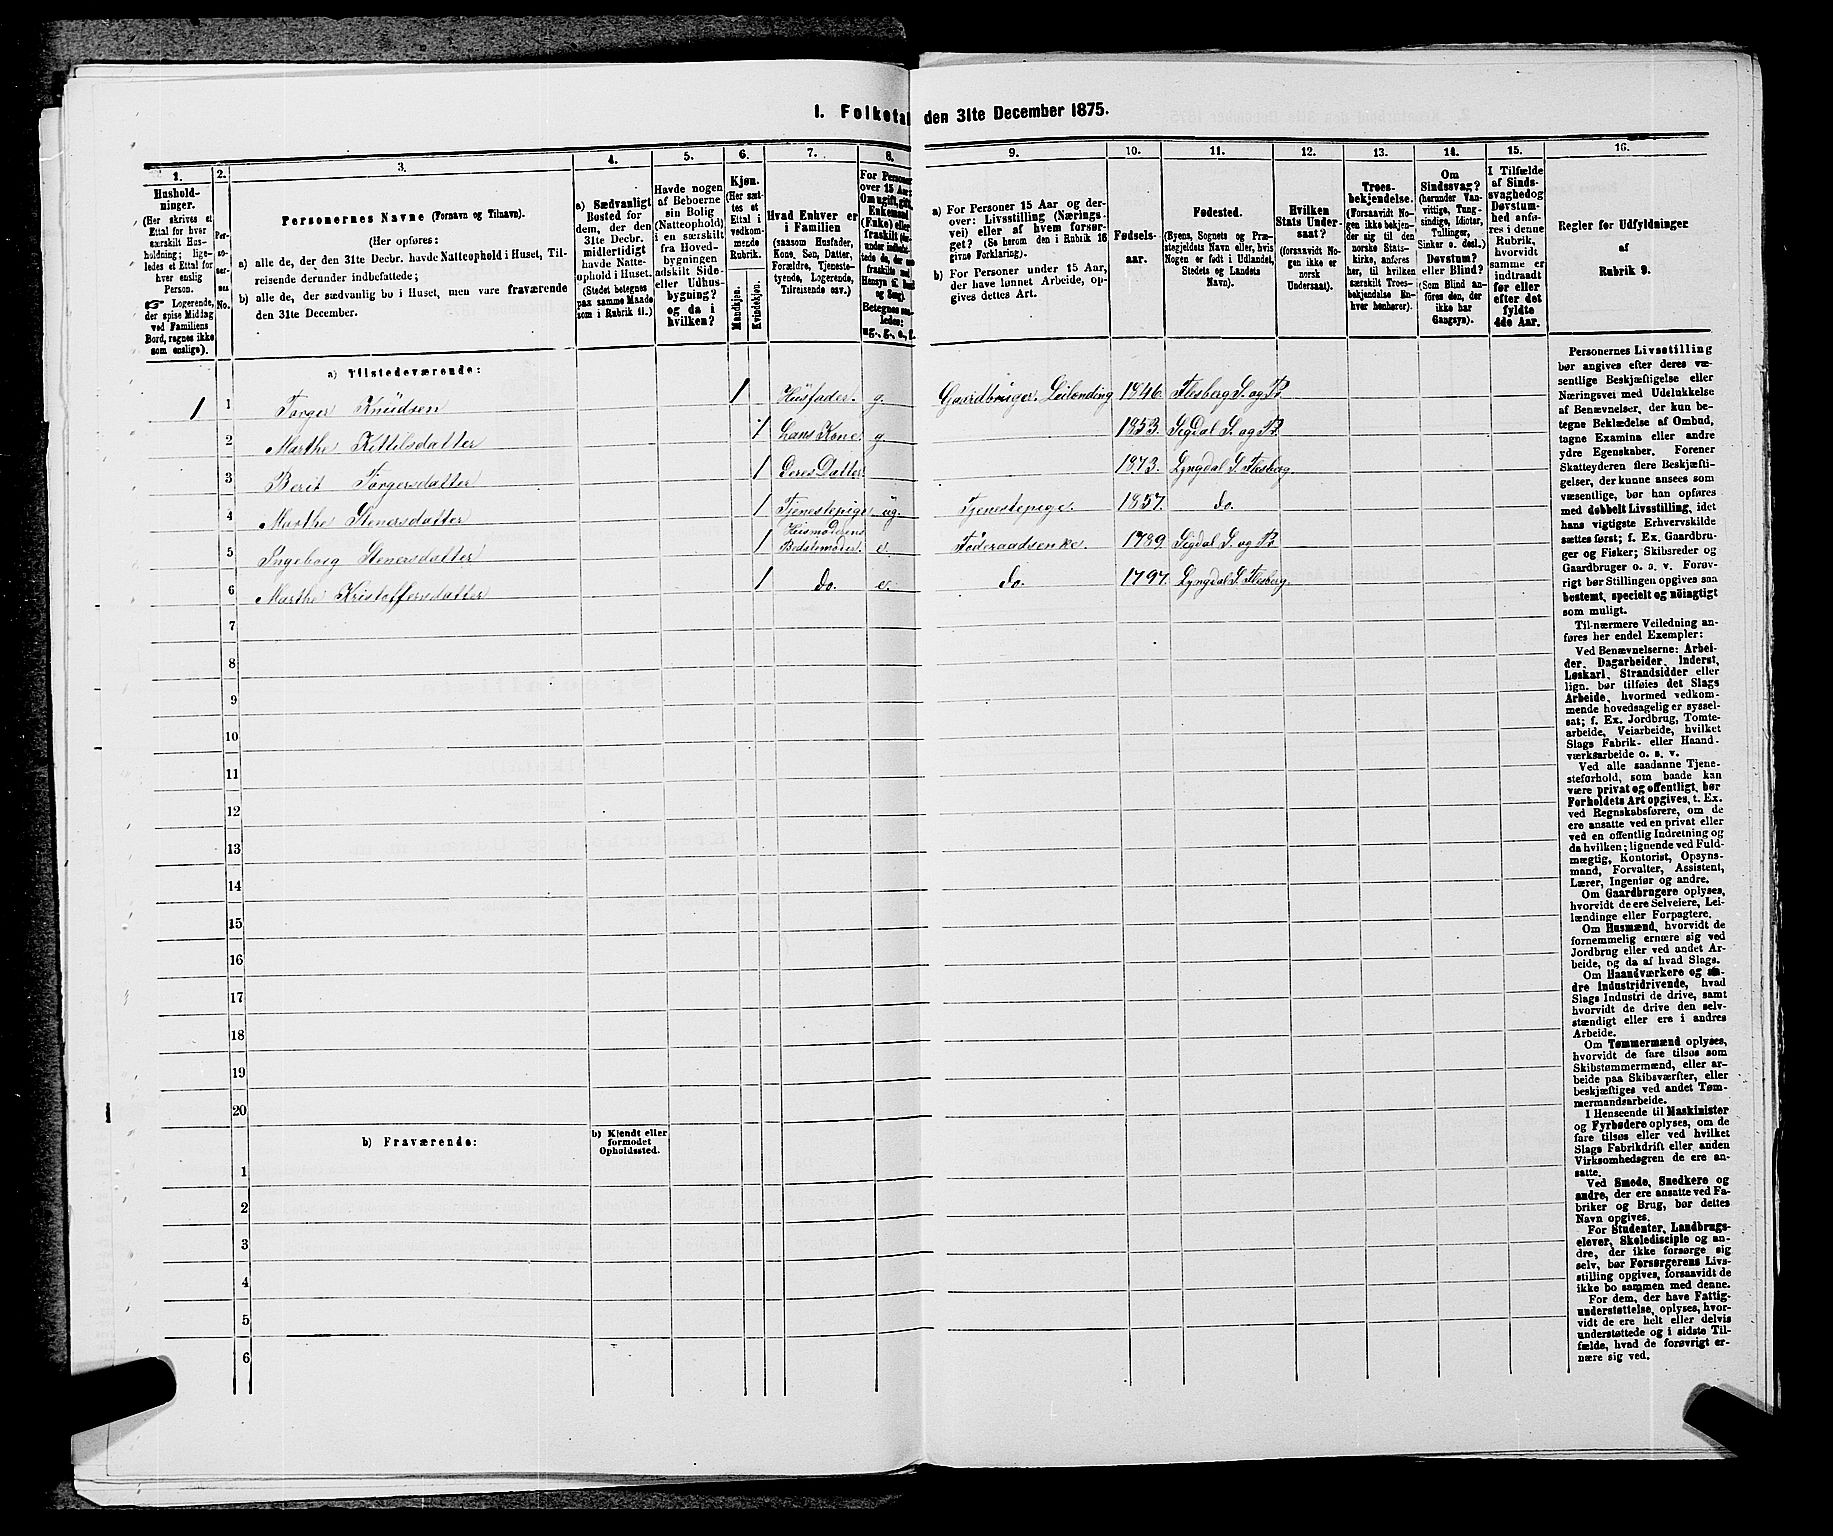 I. Folketal den 31te December 1875.
1.
Hushold-
ninger.
(Her skrives et
Ettal for hver
særskilt Hus-
holdning; lige-
ledes et Ettal for
hver enslig
Person.
☞ Logerende,
der spise Middag
ved Familiens
Bord, regnes ikke
som enslige).
2.
No.
3.
Personernes Navne (Fornavn og Tilnavn).
(Her opføres:
a) alle de, der den 31te Decbr. havde Natteophold i Huset, Til-
reisende derunder indbefattede;
b) alle de, der sædvanlig bo i Huset, men vare fraværende
den 31te December.
4.
a) Sædvanligt
Bosted for
dem, der den
31te Decbr.
midlertidigt
havde Natte-
ophold i Huset.
(Stedet betegnes
paa samme Maade
som i Rubrik 11.)
5.
Havde nogen
af Beboerne
sin Bolig
(Natteophold)
i en særskilt
fra Hoved-
bygningen
adskilt Side-
eller Udhus-
bygning?
og da i
hvilken?
6.
Kjøn.
(Her sæt-
tes et
Ettal i
vedkom-
mende
Rubrik.
Mandkjøn.
Kvindekjøn.
7.
Hvad Enhver er
i Familien
(saasom Husfader,
Kone, Søn, Datter,
Forældre, Tjeneste-
tyende, Logerende,
Tilreisende osv.)
8.
For Personer
over 15 Aar:
Om ugift, gift,
Enkemand
(Enke) eller
fraskilt
Betegnes saa-
ledes:
ug., g., e., f.
9.
a) For Personer 15 Aar og der-
over: Livsstilling (Nærings-
vei) eller af hvem forsør-
get? (Se herom den i Rubrik 16
givne Forklaring).
b) For Personer under 15 Aar,
der have lønnet Arbeide, op-
gives dettes Art.
10.
Fødsels-
aar.
11.
Fødested.
(Byens, Sognets og Præ-
stegjeldets Navn eller, hvis
Nogen er født i Udlandet,
Stedets og Landets
Navn).
12.
Hvilken
Stats Under-
saat?
(forsaavidt No-
gen ikke er
norsk
Undersaat).
13.
Troes-
bekjendelse.
(Forsaavidt No-
gen ikke bekjen-
der sig til den
norske Stats-
kirke, anføres
her, til hvilken
særskilt Troes-
bekjendelse En-
hver henhører).
14.
Om
Sindssvag?
(herunder Van-
vittige, Tung-
sindige, Idioter,
Tullinger,
Sinker o. desl.)
Døvstum?
eller Blind?
(Som Blind an-
føres den, der
ikke har
Gangsyn).
15.
I Tilfælde
af Sinds-
svaghed og
Døvstum-
hed anfø-
res i denne
Rubrik,
hvorvidt
samme er
indtraadt
før eller
efter det
fyldte
4de Aar.
16.
Regler for Udfyldninger
af
Rubrik 9.
a) Tilstedeværende:
1 1 Torger Knudsen 1 Husfader. g. Gaardbruger. Leilending 1846. Flesberg S. og Pr.
2 Marthe Kittilsdatter 1 Hans Kone g 1853. Sigdal S. og Pr.
3 Berit Torgersdatter 1 Deres Datter 1873. Lyngdal S. Flesberg.
4 Marthe Stenersdatter 1 Tjenestepige ug. Tjenestepige. 1857. do.
5 Ingeborg Stenersdatter 1 Husmoderens Bedstemoder. e. Føderaadsenke. 1789. Sigdal S. og Pr.
6 Marthe Kristoffersdatter 1 do. e. do. 1797. Lyngdal S. Flesberg.
7
8
9
10
11
12
13
14
15
16
17
18
19
20
b) Fraværende:
b) Kjendt eller
formodet
Opholdssted.
1
2
3
4
5
6
Personernes Livsstilling
bør angives efter deres væ-
sentlige Beskjæftigelse eller
Næringsvei med Udelukkelse
af Benævnelser, der kun be-
tegne Beklædelse af Ombud,
tagne Examina eller andre
ydre Egenskaber. Forener
Skatteyderen flere Beskjæfti-
gelser, der kunne ansees som
væsentlige, bør han opføres
med dobbelt Livsstilling, idet
hans vigtigste Erhvervskilde
sættes først; f. Ex. Gaardbru-
ger og Fisker; Skibsreder og
Gaardbruger o. s. v. Forøv-
rigt bør Stillingen opgives saa
bestemt, specielt og nøiagtigt
som muligt.
Til nærmere Veiledning an-
føres her endel Exempler:
Ved Benævnelserne: Arbei-
der, Dagarbeider, Inderst,
Løskarl, Strandsidder eller
lign. bør tilføies det Slags
Arbeide, hvormed vedkom-
mende hovedsagelig er syssel-
sat; f. Ex. Jordbrug, Tomte-
arbeide, Veiarbeide, hvilket
Slags Fabrik- eller Haand-
værksarbeide o. s. v.
Ved alle saadanne Tjene-
steforhold, som baade kan
være privat og offentligt, bør
Forholdets Art opgives, t. Ex.
ved Regnskabsførere, om de
ere ansatte ved en privat eller
ved en offentlig Indretning og
da hvilken; lignende ved Fuld-
mægtig, Kontorist, Opsyns-
mand, Forvalter, Assistent,
Lærer, Ingeniør og andre.
Om Gaardbrugere oplyses,
hvorvidt de ere Selveiere, Lei-
lændinge eller Forpagtere.
Om Husmænd, hvorvidt de
fornemmelig ernære sig ved
Jordbrug eller ved andet Ar-
beide, og da af hvad Slags.
Om Haandværkere og an-
dre Industridrivende, hvad
Slags Industri de drive, samt
hvorvidt de drive den selv-
stændigt eller ere i andres
Arbeide.
Om Tømmermænd oplyses,
hvorvidt de fare tilsøs som
Skibstømmermænd, eller ar-
beide paa Skibsværfter, eller
beskjæftiges ved andet Tøm-
mermandsarbeide.
I Henseende til Maskinister
og Fyrbødere oplyses, om de
fare tilsøs eller ved hvilket
Slags Fabrikdrift eller anden
Virksomhedsgren de ere an-
satte.
Ved Smede, Snedkere og
andre, der ere ansatte ved Fa-
briker og Brug, bør dettes
Navn opgives.
For Studenter, Landbrugs-
elever, Skoledisciple og an-
dre, der ikke forsørge sig
selv, bør Forsørgerens Livs-
stilling opgives, forsaavidt de
ikke bo sammen med denne.
For dem, der have Fattig-
understøttelse, oplyses, hvor-
vidt de ere helt eller delvis
understøttede og i sidste Til-
fælde, hvad de forøvrigt er-
nære sig ved.